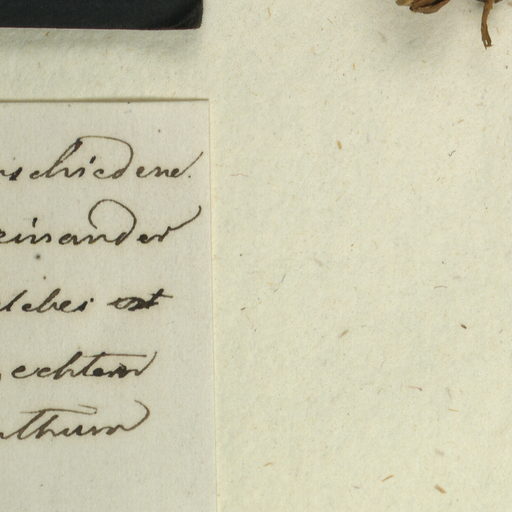 schiedene
einander
lches ist
echtem
thum